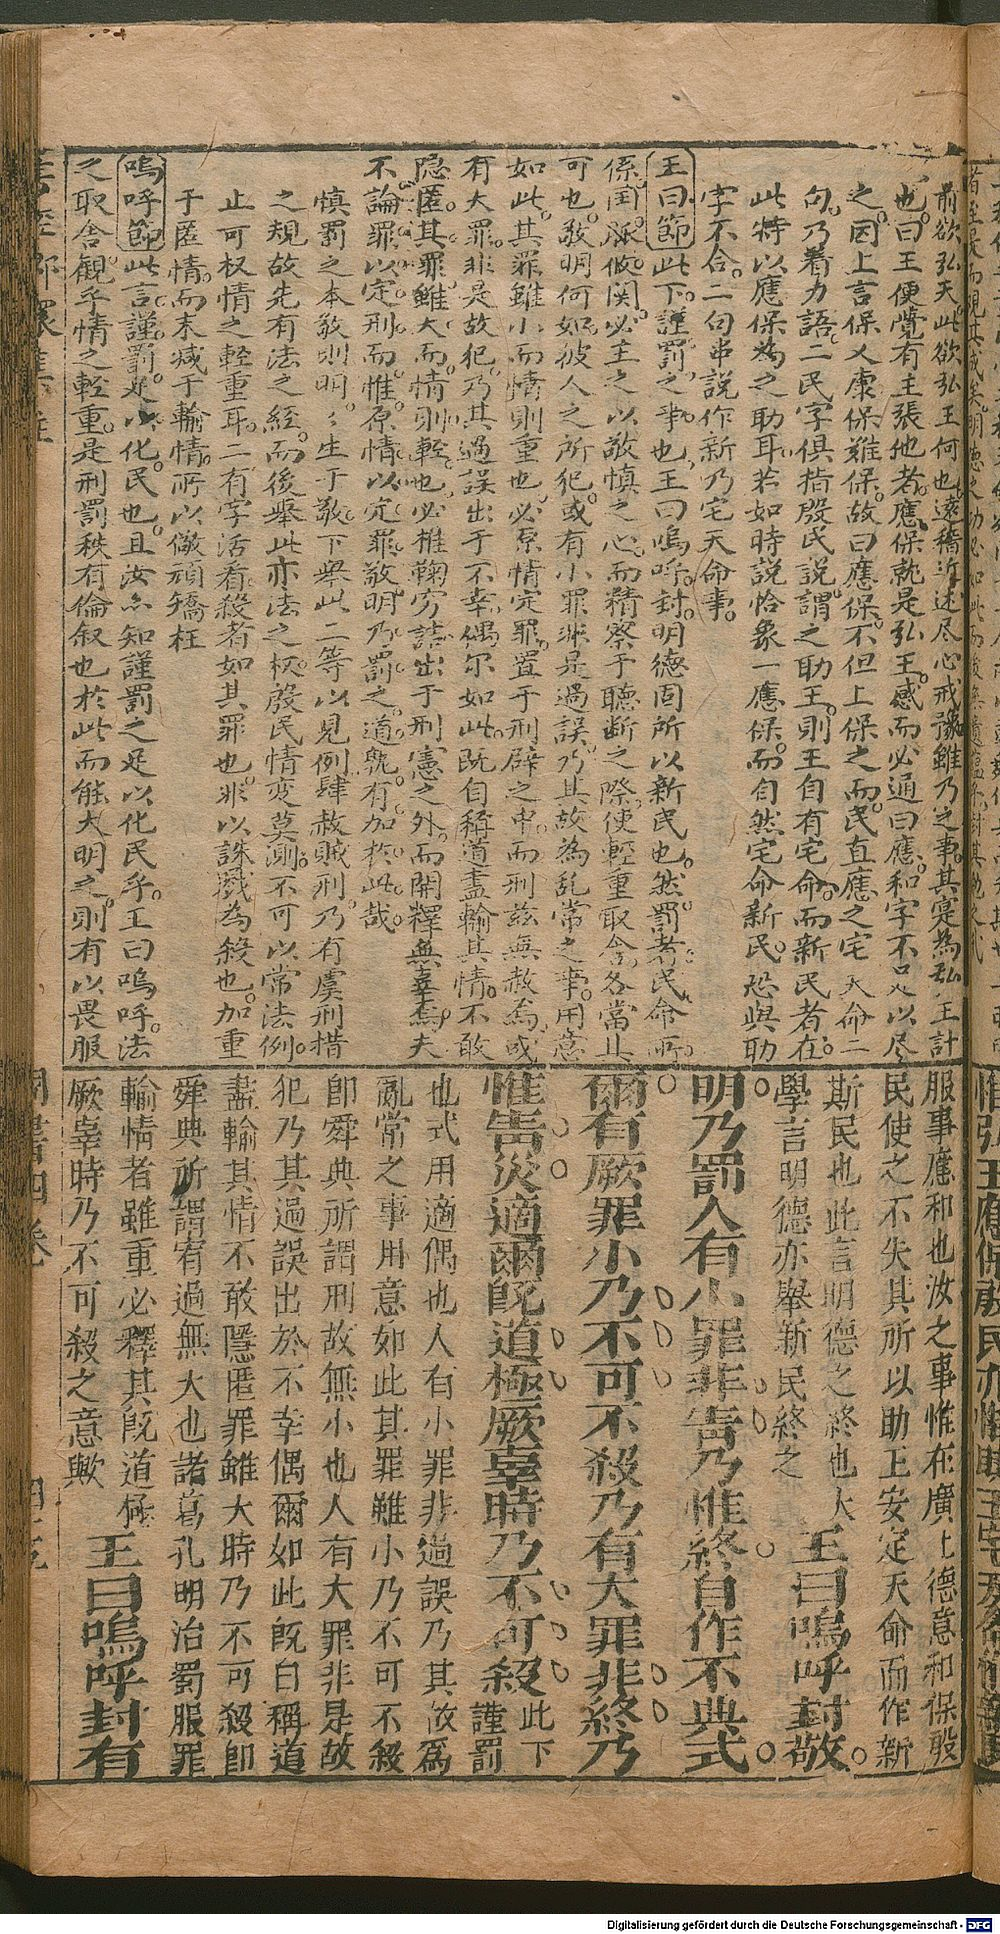 前欲弘天此欲弘王何也遠稽近述尽心戒豫雖乃之事其寔為弘王計
也曰王便覺有主張他者應保就是弘王感而必通曰應和字不足以尽
之因上言保乂康保難保故曰應保不但上保之而民直應之宅天命二
句乃着力語二民字俱指殷民說謂之助王則王自有宅命而新民者在
此特以應保為之助耳若如時說恰象一應保而自然宅命新民恐與助
字不合二句串說作新乃宅天命事
王曰節此下謹罰之事也王曰嗚呼封明德固所以新民也然罰者民命所
係国脉攸関必主之以敬慎之心而精察于聽断之際使輕重取舍各當其
可也敬明何如彼人之所犯或有小罪非是過誤乃其故為乱常之事用意
如此其罪雖小而情則重也必原情定罪置于刑辟之中而刑茲無赦焉或
有大罪非是故犯乃其過誤出于不幸偶尔如此既自稱道盡輸其情不敢
隐匿其罪雖大而情則輕也必推鞠穷詰出于刑憲之外而開釋無辜焉夫
不論罪以定刑而惟原情以定罪敬明乃罰之道孰有加於此哉
慎罰之本敬則明明生于敬下舉此二等以見例肆赦賊刑乃有虞刑措
之規故先有法之経而後舉此亦法之权殷民情変莫測不可以常法例
止可权情之輕重耳二有字活看殺者如其罪也非以誅戮為殺也加重
于匿情而末减于輸情所以儆頑矯枉
嗚呼節此言謹罰足以化民也且汝亦知謹罰之足以化民乎王曰嗚呼法
之取舍観乎情之輕重是刑罰秩有倫叙也於此而能大明之則有以畏服
服事應和也汝之事惟在廣上德意和保殷
民使之不失其所以助王安定天命而作新
斯民也此言明德之終也大
學言明德亦舉新民終之
王曰嗚呼封敬
明乃罰人有小罪非眚乃惟終自作不典式
爾有厥罪小乃不可不殺乃有大罪非終乃
惟眚災適爾既道極厥辜時乃不可殺此下謹罰
也式用適偶也人有小罪非過誤乃其故爲
亂常之事用意如此其罪雖小乃不可不殺
卽舜典所謂刑故無小也人有大罪非是故
犯乃其過誤出於不幸偶爾如此既自稱道
盡輸其情不敢隱匿罪雖大時乃不可殺卽
舜典所謂宥過無大也諸葛孔明治蜀服罪
輸情者雖重必釋其既道極
厥辜時乃不可殺之意歟
王曰嗚呼封有
周書四卷
Digitalisierung gefördert durch die Deutsche Forschungsgemeinschaft - DFG